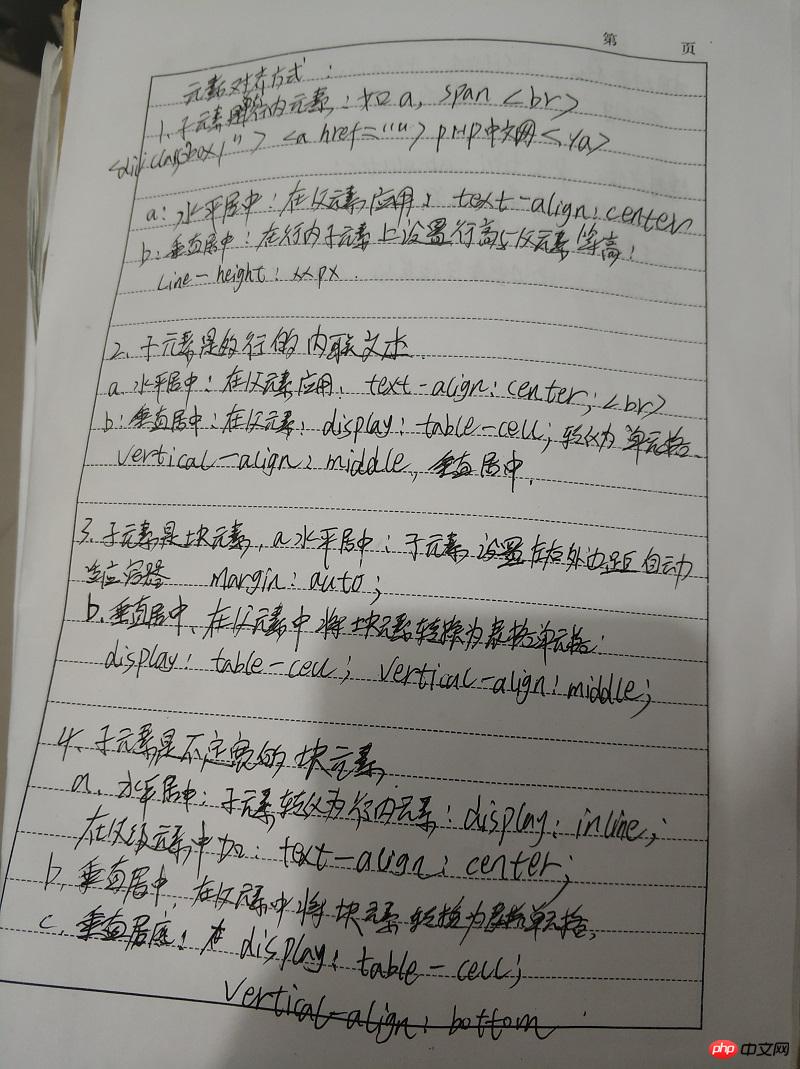 第 页
元素对齐方式:
1、子元素是行内元素,:如 a, span <br>
<div class="box1"> <a href=""> php中文网 </a>
a: 水平居中:在父元素应用: text-align:center
b: 垂直居中:在行内子元素上设置行高与父元素等高:
Line-height: xxpx.
2、子元素是多行的内联文本.
a.水平居中:在父元素应用: text-align: center; <br>
b:垂直居中:在父元素: display: table-cell; 转化为单元格
vertical-align: middle, 垂直居中,
3.子元素是块元素, a水平居中: 子元素设置左右外边距自动
适应 margin: auto;
b.垂直居中、在父元素中将块元素转换为表格单元格:
display: table-cell; vertical-align: middle;
4、子元素是不定宽的块元素
a、水平居中:子元素转化为行内元素: display: inline;
在父级元素中加: text-align: center;
b. 垂直居中, 在父元素中将块元素转换为表格单元格,
c. 垂直居底: display: table-cell;
vertical-align: bottom
php 中文网